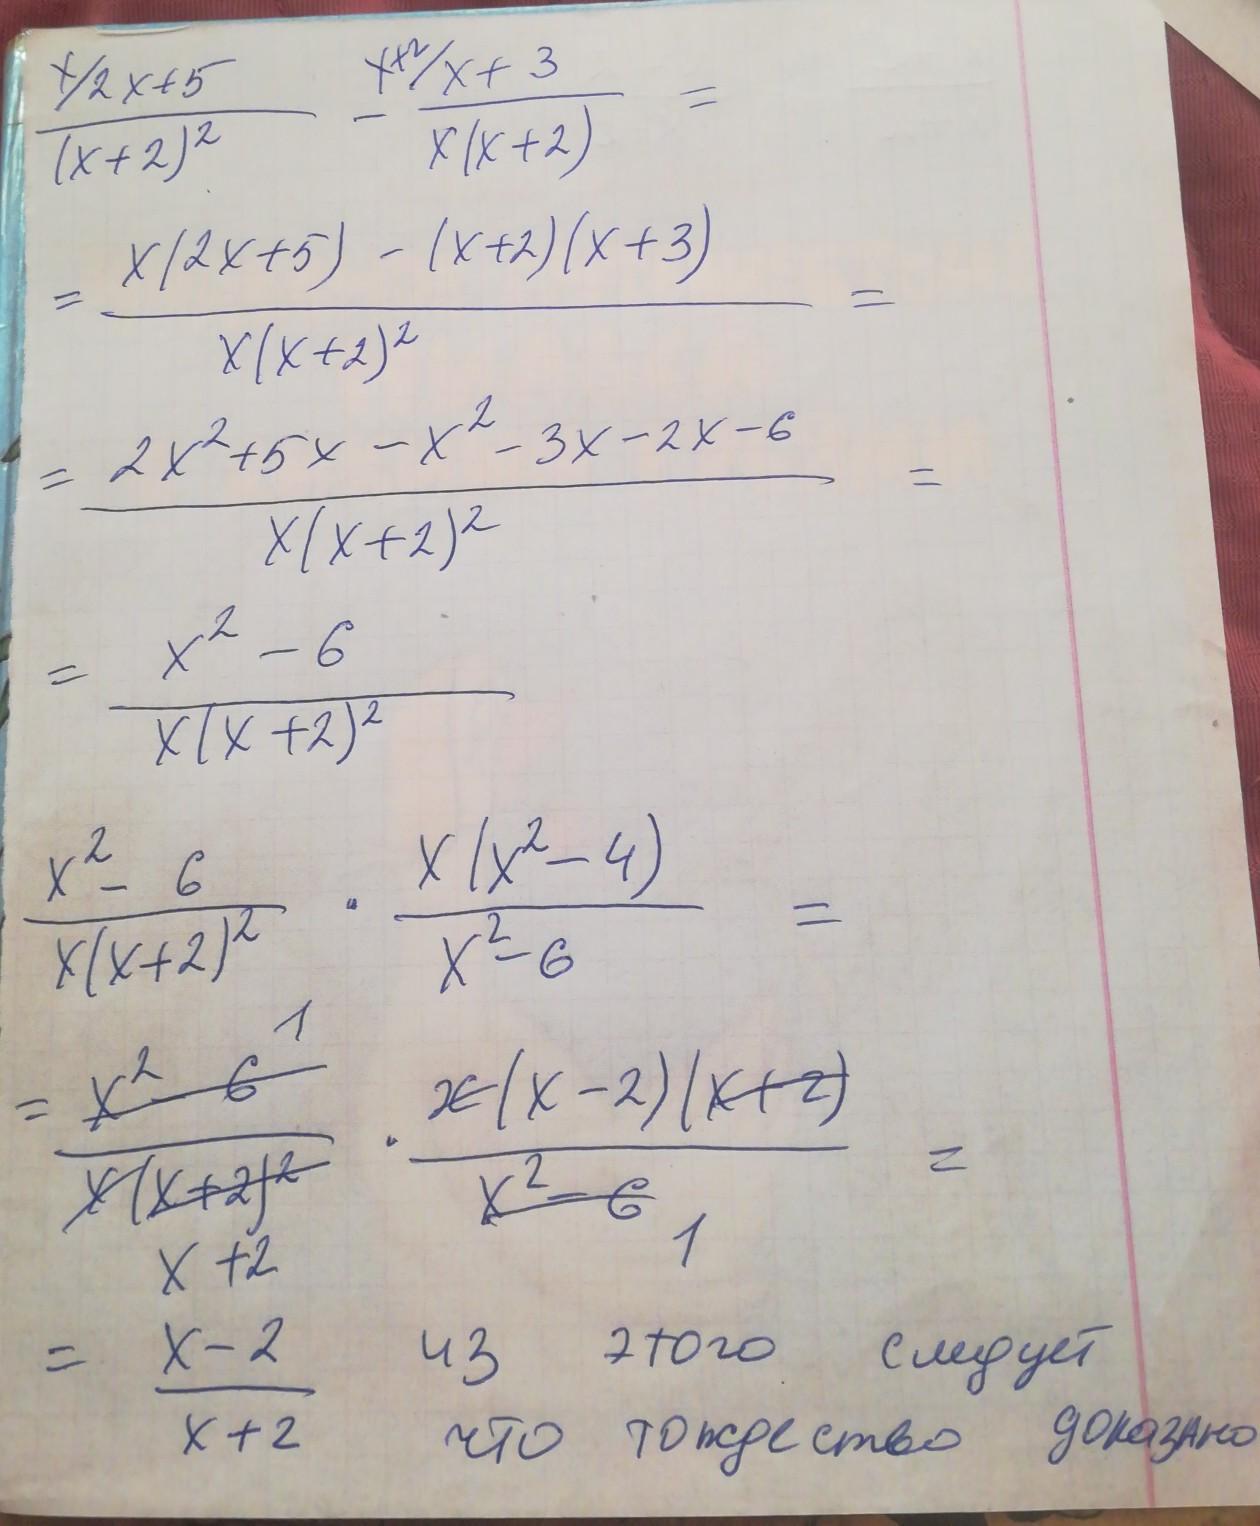 x/2x+5 / (x+2)² - x+2/x+3 / x(x+2) =
= x(2x+5) - (x+2)(x+3) / x(x+2)² =
= 2x²+5x - x² - 3x - 2x - 6 / x(x+2)² =
= x² - 6 / x(x+2)²
x² - 6 / x(x+2)² · x(x² - 4) / x² - 6 =
= x² - 6 1 / x(x+2)² x+2 · x(x-2)(x+2) / x² - 6 1 =
= x - 2 / x+2 из этого следует
что тождество доказано